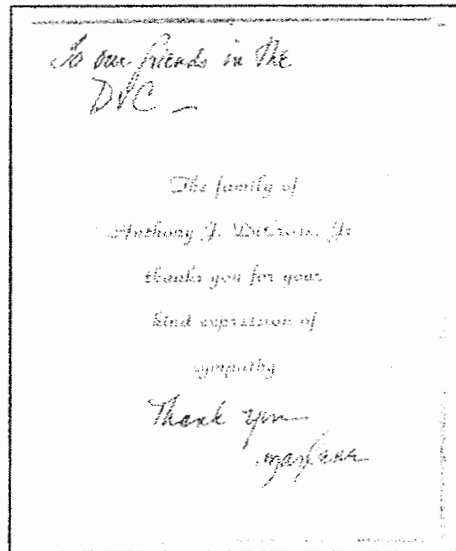 To our friends in the
DVC –
The family of
Anthony J. Jr
thanks you for your
kind expression of
sympathy
Thank you